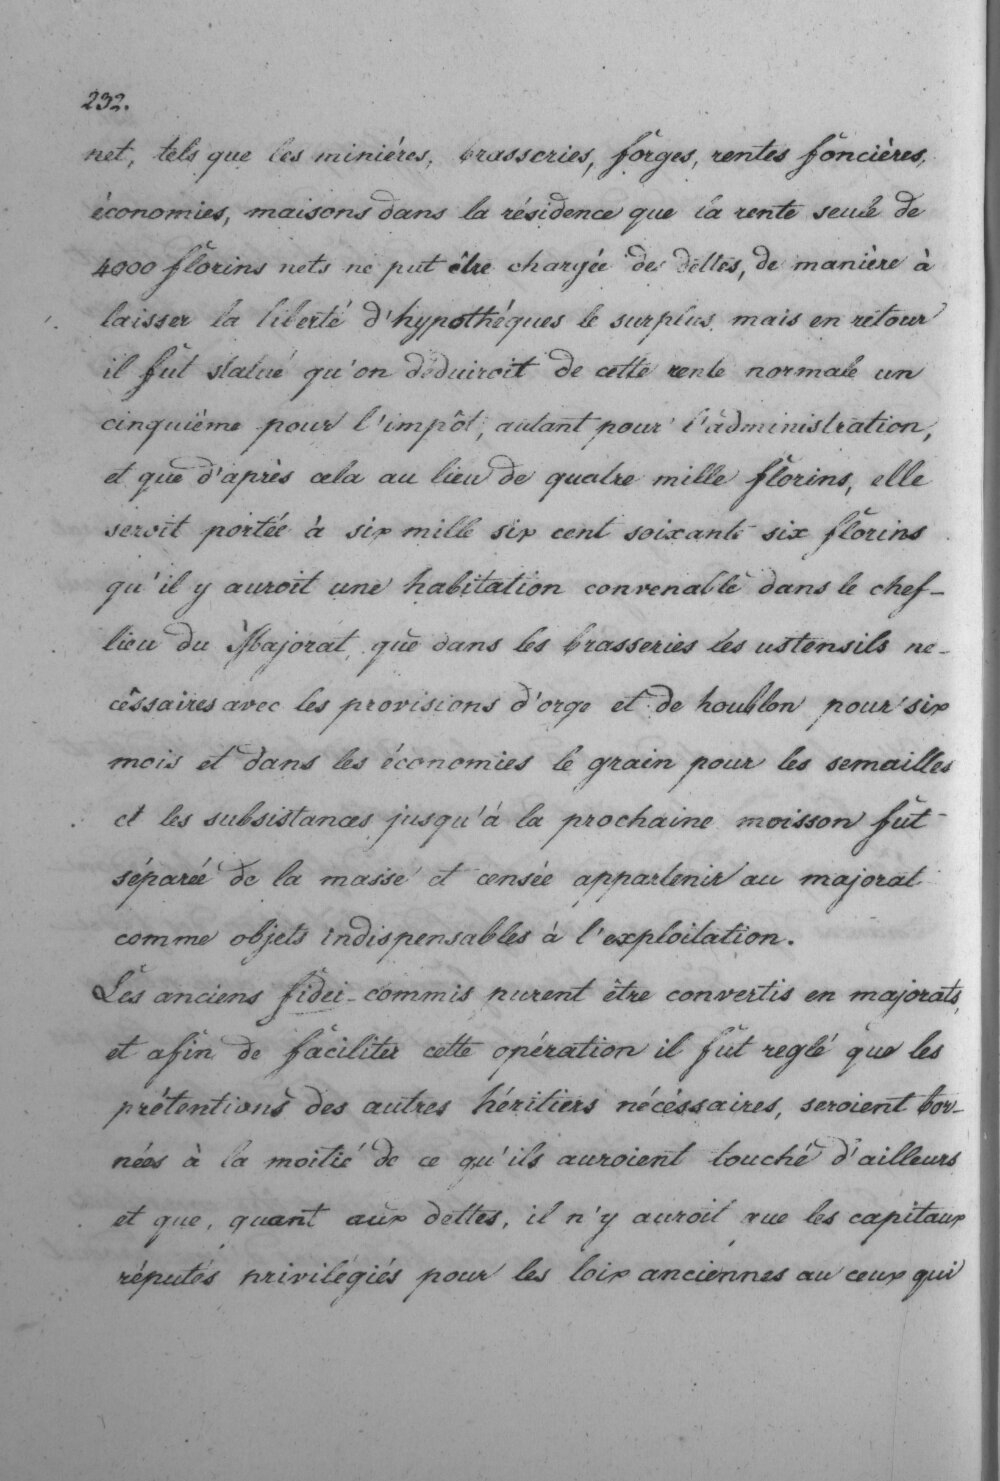 232.
net, tels que les miniéres, brasseries, forges, rentes foncières,
économies, maisons dans la résidence que la rente seule de
4000 florins nets ne put être chargée de dettes, de manière à
laisser la liberté d'hypothéques le surplus, mais en retour
il fut statué qu'on déduiroit de cette rente normale un
cinquième pour l'impôt, autant pour l'administration,
et que d'après cela au lieu de quatre mille florins, elle
seroit portée à six mille six cent soixante six florins
qu'il y auroit une habitation convenable dans le chef-
lieu du Majorat, que dans les brasseries les ustensils ne-
cessaires avec les provisions d'orge et de houblon pour six
mois et dans les économies le grain pour les semailles
et les subsistances jusqu'à la prochaine moisson fut
séparée de la masse et censée appartenir au majorat
comme objets indispensables à l'exploitation.
Les anciens fidei-commis purent être convertis en majorats,
et afin de faciliter cette opération il fut reglé que les
prétentions des autres héritiers nécéssaires, seroient bor-
nées à la moitié de ce qu'ils auroient touché d'ailleurs
et que, quant aux dettes, il n'y auroit que les capitaux
réputés privilégiés pour les loix anciennes au ceux qui